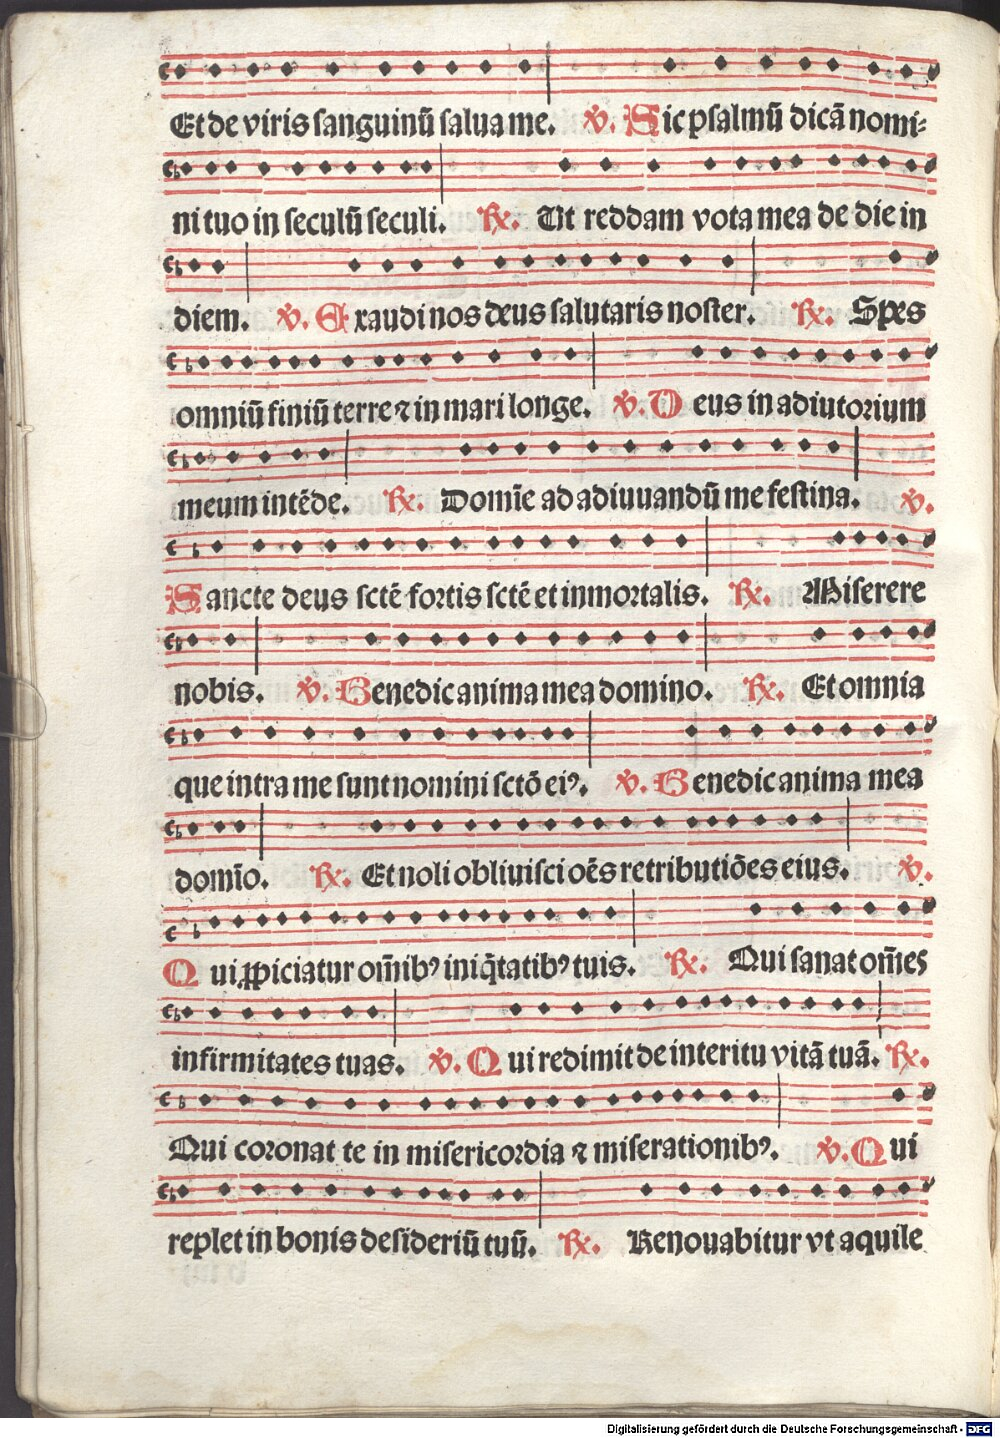 Et de viris sanguinū salua me. ℣. Sic psalmū dicā nomi⸗
ni tuo in seculū seculi. ℟. Ut reddam vota mea de die in
diem. ℣. Exaudi nos deus salutaris noster. ℟. Spes
omniū finiū terre ⁊ in mari longe. ℣. Deus in adiutorium
meum intēde. ℟. Domīe ad adiuuandū me festina. ℣.
Sancte deus sctē fortis sctē et inmortalis. ℟. Miserere
nobis. ℣. Benedic anima mea domino. ℟. Et omnia
que intra me sunt nomini sctō eiꝰ. ℣. Benedic anima mea
domīo. ℟. Et noli obliuisci oēs retributiōes eius. ℣.
Qui ꝓpiciatur om̄ibꝰ iniq̄tatibꝰ tuis. ℟. Qui sanat om̄es
infirmitates tuas. ℣. Qui redimit de interitu vitā tuā. ℟.
Qui coronat te in misericordia ⁊ miserationibꝰ. ℣. Qui
replet in bonis desideriū tuū. ℟. Renouabitur vt aquile
Digitalisierung gefördert durch die Deutsche Forschungsgemeinschaft - DFG